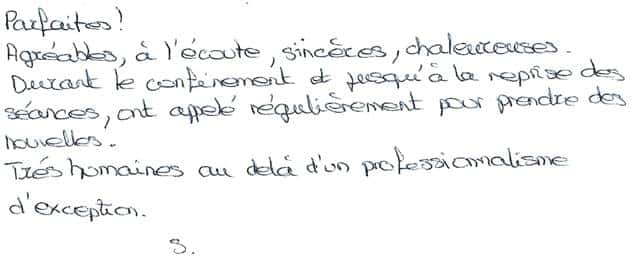 Parfaites !
Agréables, à l'écoute, sincères, chaleureuses.
Durant le confinement et jusqu'à la reprise des
séances, ont appelé régulièrement pour prendre des
nouvelles.
Trés humaines au delà d'un professionnalisme
d'exception.
S.